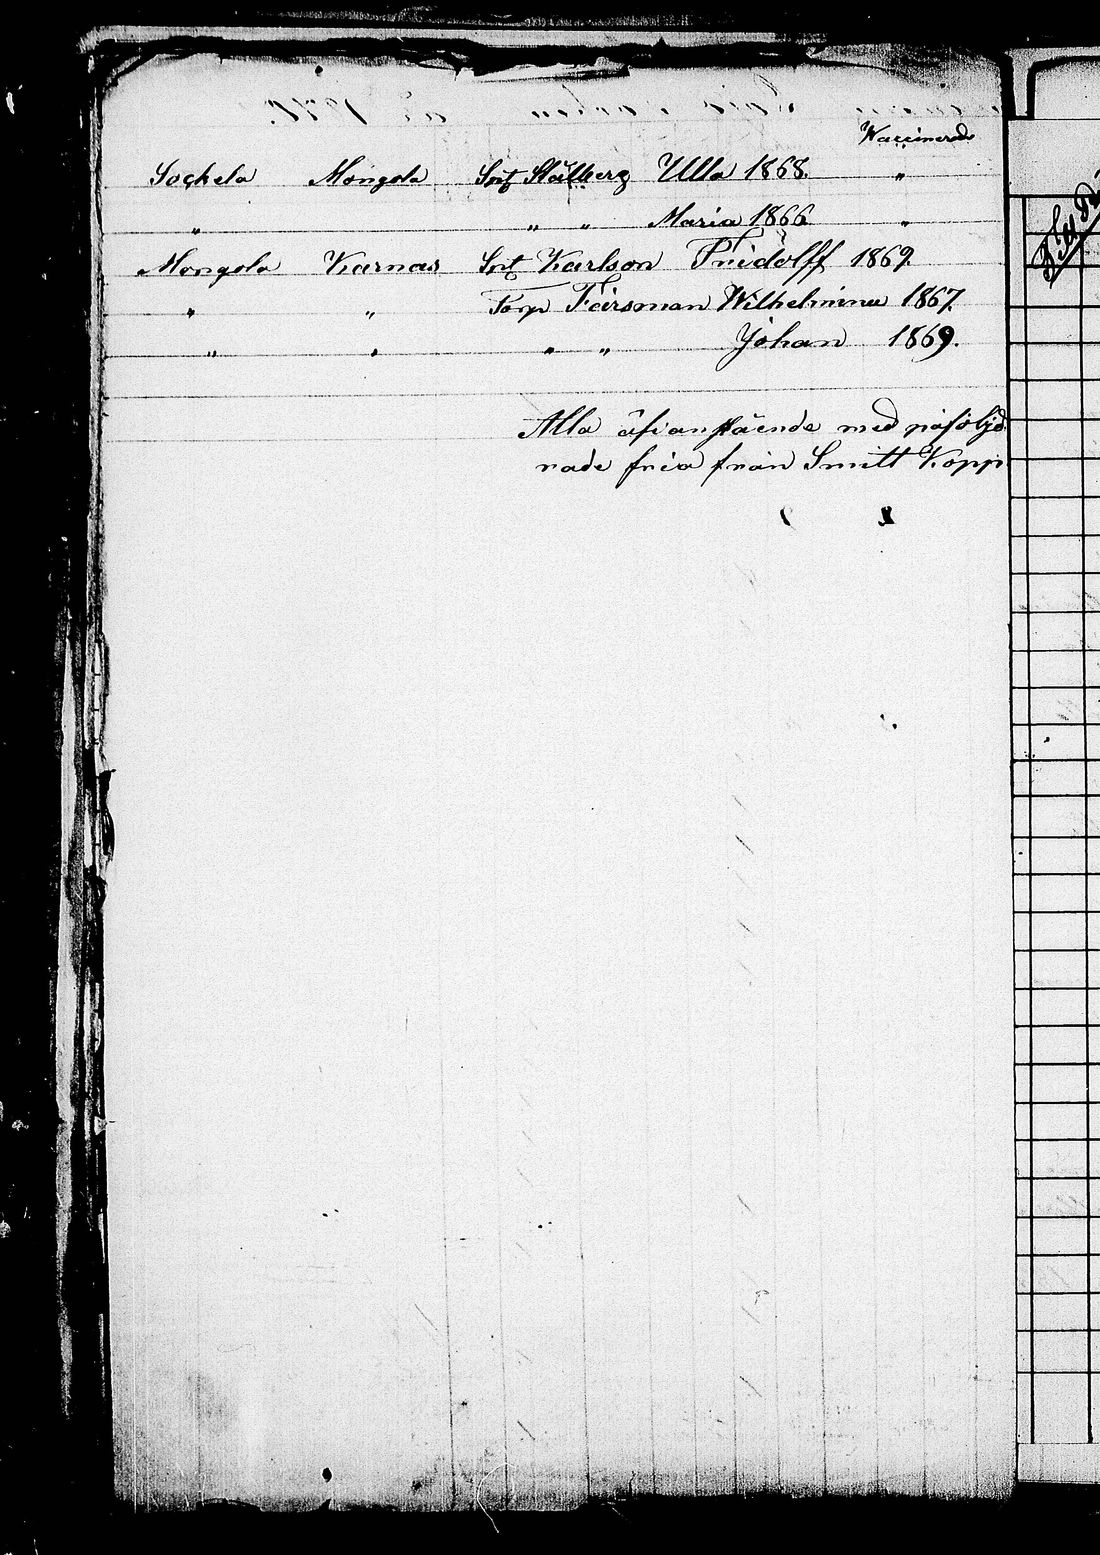 Waccinerade
Sockela Mongola Snt Stålberg Ulla 1868. "
" " " Maria 1866 "
Mongola Karnas Snt Karlson Fridolff 1869.
" " Torp Färsman Wilhelmina 1867.
" " " " Johan 1869.
Alla åfvanstående med påföljd
nade fria från Smitt Kopp